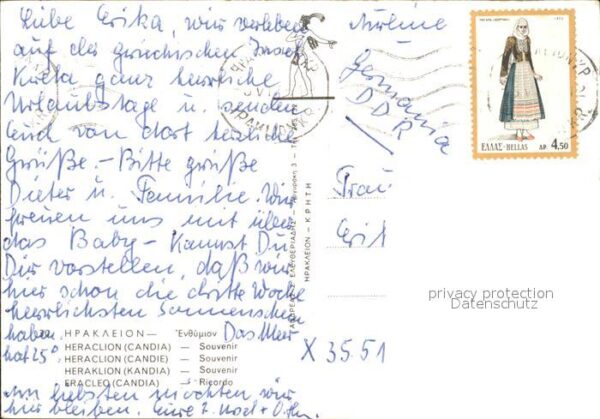 Liebe Erika, wir verleben
auf der griechischen Insel
Kreta ganz herrliche
Urlaubstage u. senden
Euch von dort herzliche
Grüße. - Bitte grüße
Dieter u. Familie. Wir
freuen uns mit über
das Baby - Kannst Du
Dir vorstellen, daß wir
hier schon die dritte Woche
herrlichsten Sonnenschein
haben. Das Meer
hat 25°.
Am liebsten möchten wir
hier bleiben. Eure
ΗΡΑΚΛΕΙΟΝ — Ἐνθύμιον
HERACLION (CANDIA) — Souvenir
HERACLION (CANDIE) — Souvenir
HERAKLION (KANDIA) — Souvenir
ERACLEO (CANDIA) — Ricordo
ΗΡΑΚΛΕΙΟΝ - ΚΡΗΤΗ
Airline
Germania
DDR
Frau
X 35.51
ΕΛΛΑΣ-HELLAS ΔΡ. 4,50
privacy protection
Datenschutz